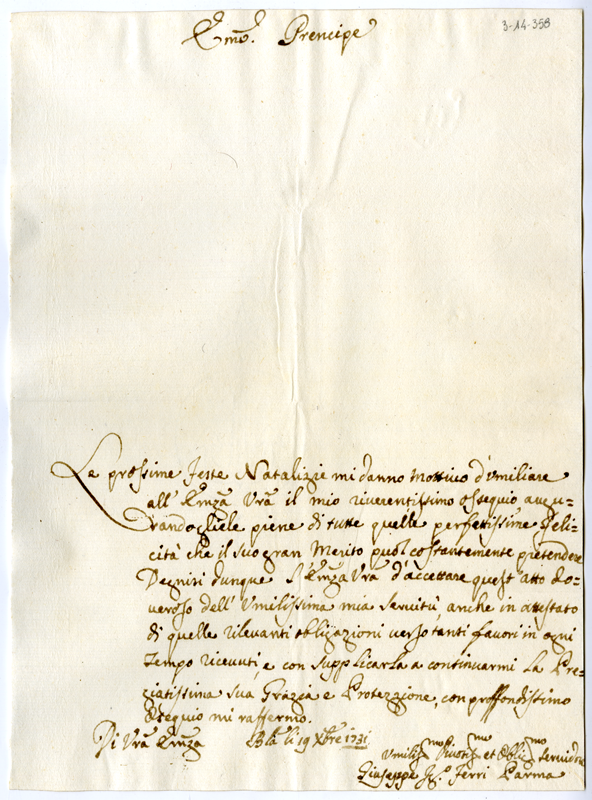 3-14-358
Emo. Prencipe
Le prossime Feste Natalizie mi danno mottivo d'Vmiliare
all' Emza Vra il mio riverentissimo ossequio augu=
randogliele piene di tutte quelle perfettissime Feli=
cità che il suo gran Merito puol costantemente pretendere
Degnisi dunque l'Emza Vra d'accettare quest' atto do=
veroso dell' Vmilissima mia servitù, anche in attestato
di quelle rilevanti obligazioni verso tanti favori in ogni
Tempo ricevuti, e con supplicarla a continuarmi la Pre=
ziatissima sua Grazia e Protezzione, con proffondissimo
Ossequio mi raffermo.
Di Vra Emza Bla li 19 Xbre 1731
Vmilismo Divotismo et Obligmo servidre
Giuseppe Ferri Parma